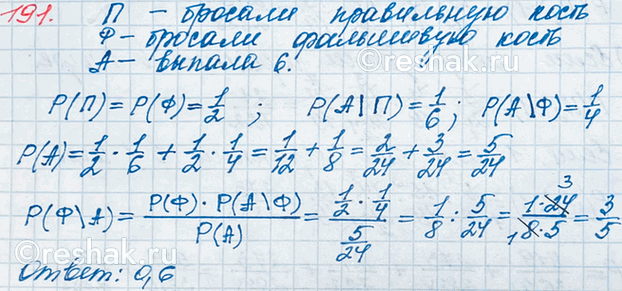 191. П – бросали правильную кость
Ф – бросали фальшивую кость
А – выпала 6.
P(П) = P(Ф) = 1/2 ; P(A|П) = 1/6 ; P(A\Ф) = 1/4
P(A) = 1/2 · 1/6 + 1/2 · 1/4 = 1/12 + 1/8 = 2/24 + 3/24 = 5/24
P(Ф\A) = P(Ф) · P(A\Ф) / P(A) = (1/2 · 1/4) / (5/24) = 1/8 : 5/24 = 1·24 3 / 1 8·5 = 3/5
Ответ: 0,6
Reshak.ru